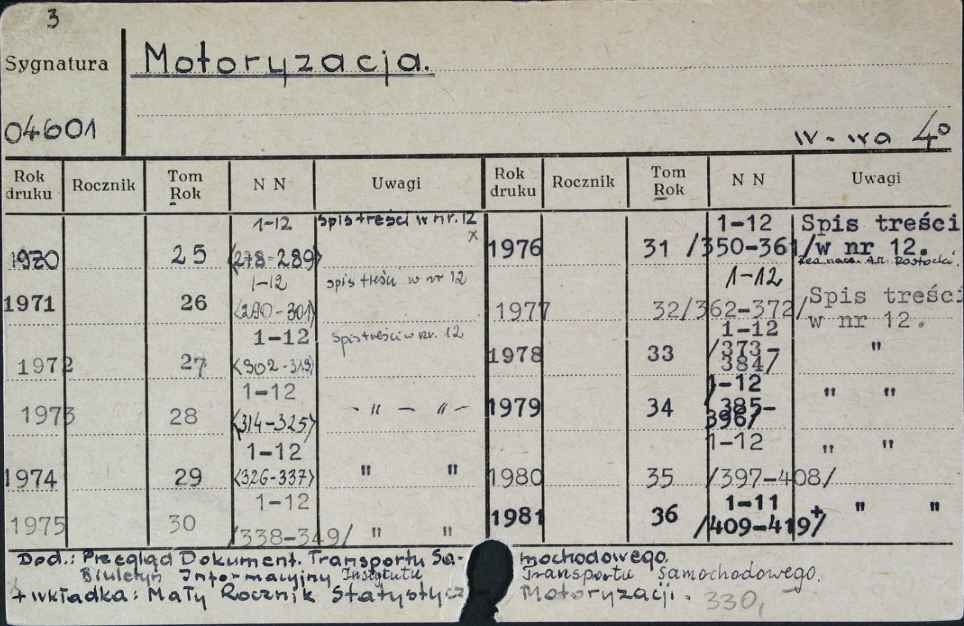 3
Sygnatura Motoryzacja.
04601 W-wa 4°
Rok druku Rocznik Tom Rok N N Uwagi Rok druku Rocznik Tom Rok N N Uwagi
1970 25 1-12 <278-289> Spis treści w nr. 12 x
1971 26 1-12 <290-301> spis treści w nr 12
1972 27 1-12 <302-313> Spis treści w nr. 12
1973 28 1-12 <314-325> - " - " -
1974 29 1-12 <326-337> " "
1975 30 1-12 /338-349/ " "
1976 31 1-12 /350-361/ Spis treści w nr 12.
1977 32 1-12 /362-372/ Spis treści w nr 12.
1978 33 1-12 /373-384/ "
1979 34 1-12 /385-396/ " "
1980 35 1-12 /397-408/ " "
1981 36 1-11 /409-419/+ " "
Dod.: Przegląd Dokument. Transportu Sa- mochodowego.
Biuletyn Informacyjny Instytutu Transportu Samochodowego.
+ wkładka: Mały Rocznik Statystycz Motoryzacji. 330,